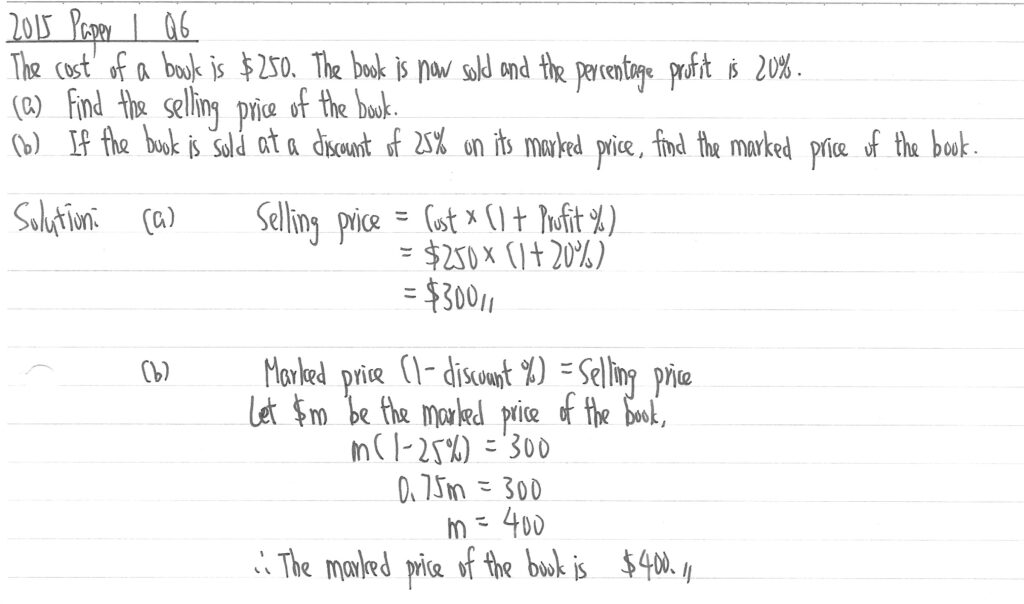 2015 Paper 1 Q6
The cost of a book is $250. The book is now sold and the percentage profit is 20%.
(a) Find the selling price of the book.
(b) If the book is sold at a discount of 25% on its marked price, find the marked price of the book.
Solution: (a) Selling price = Cost × (1 + Profit %)
= $250 × (1 + 20%)
= $300 //
(b) Marked price (1 - discount %) = Selling price
Let $m be the marked price of the book,
m(1 - 25%) = 300
0.75m = 300
m = 400
∴ The marked price of the book is $400. //